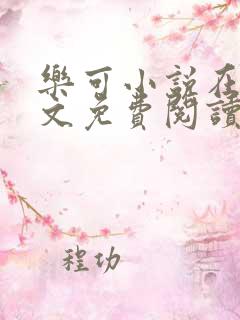 樂可小說在
文免費閱讀
程功